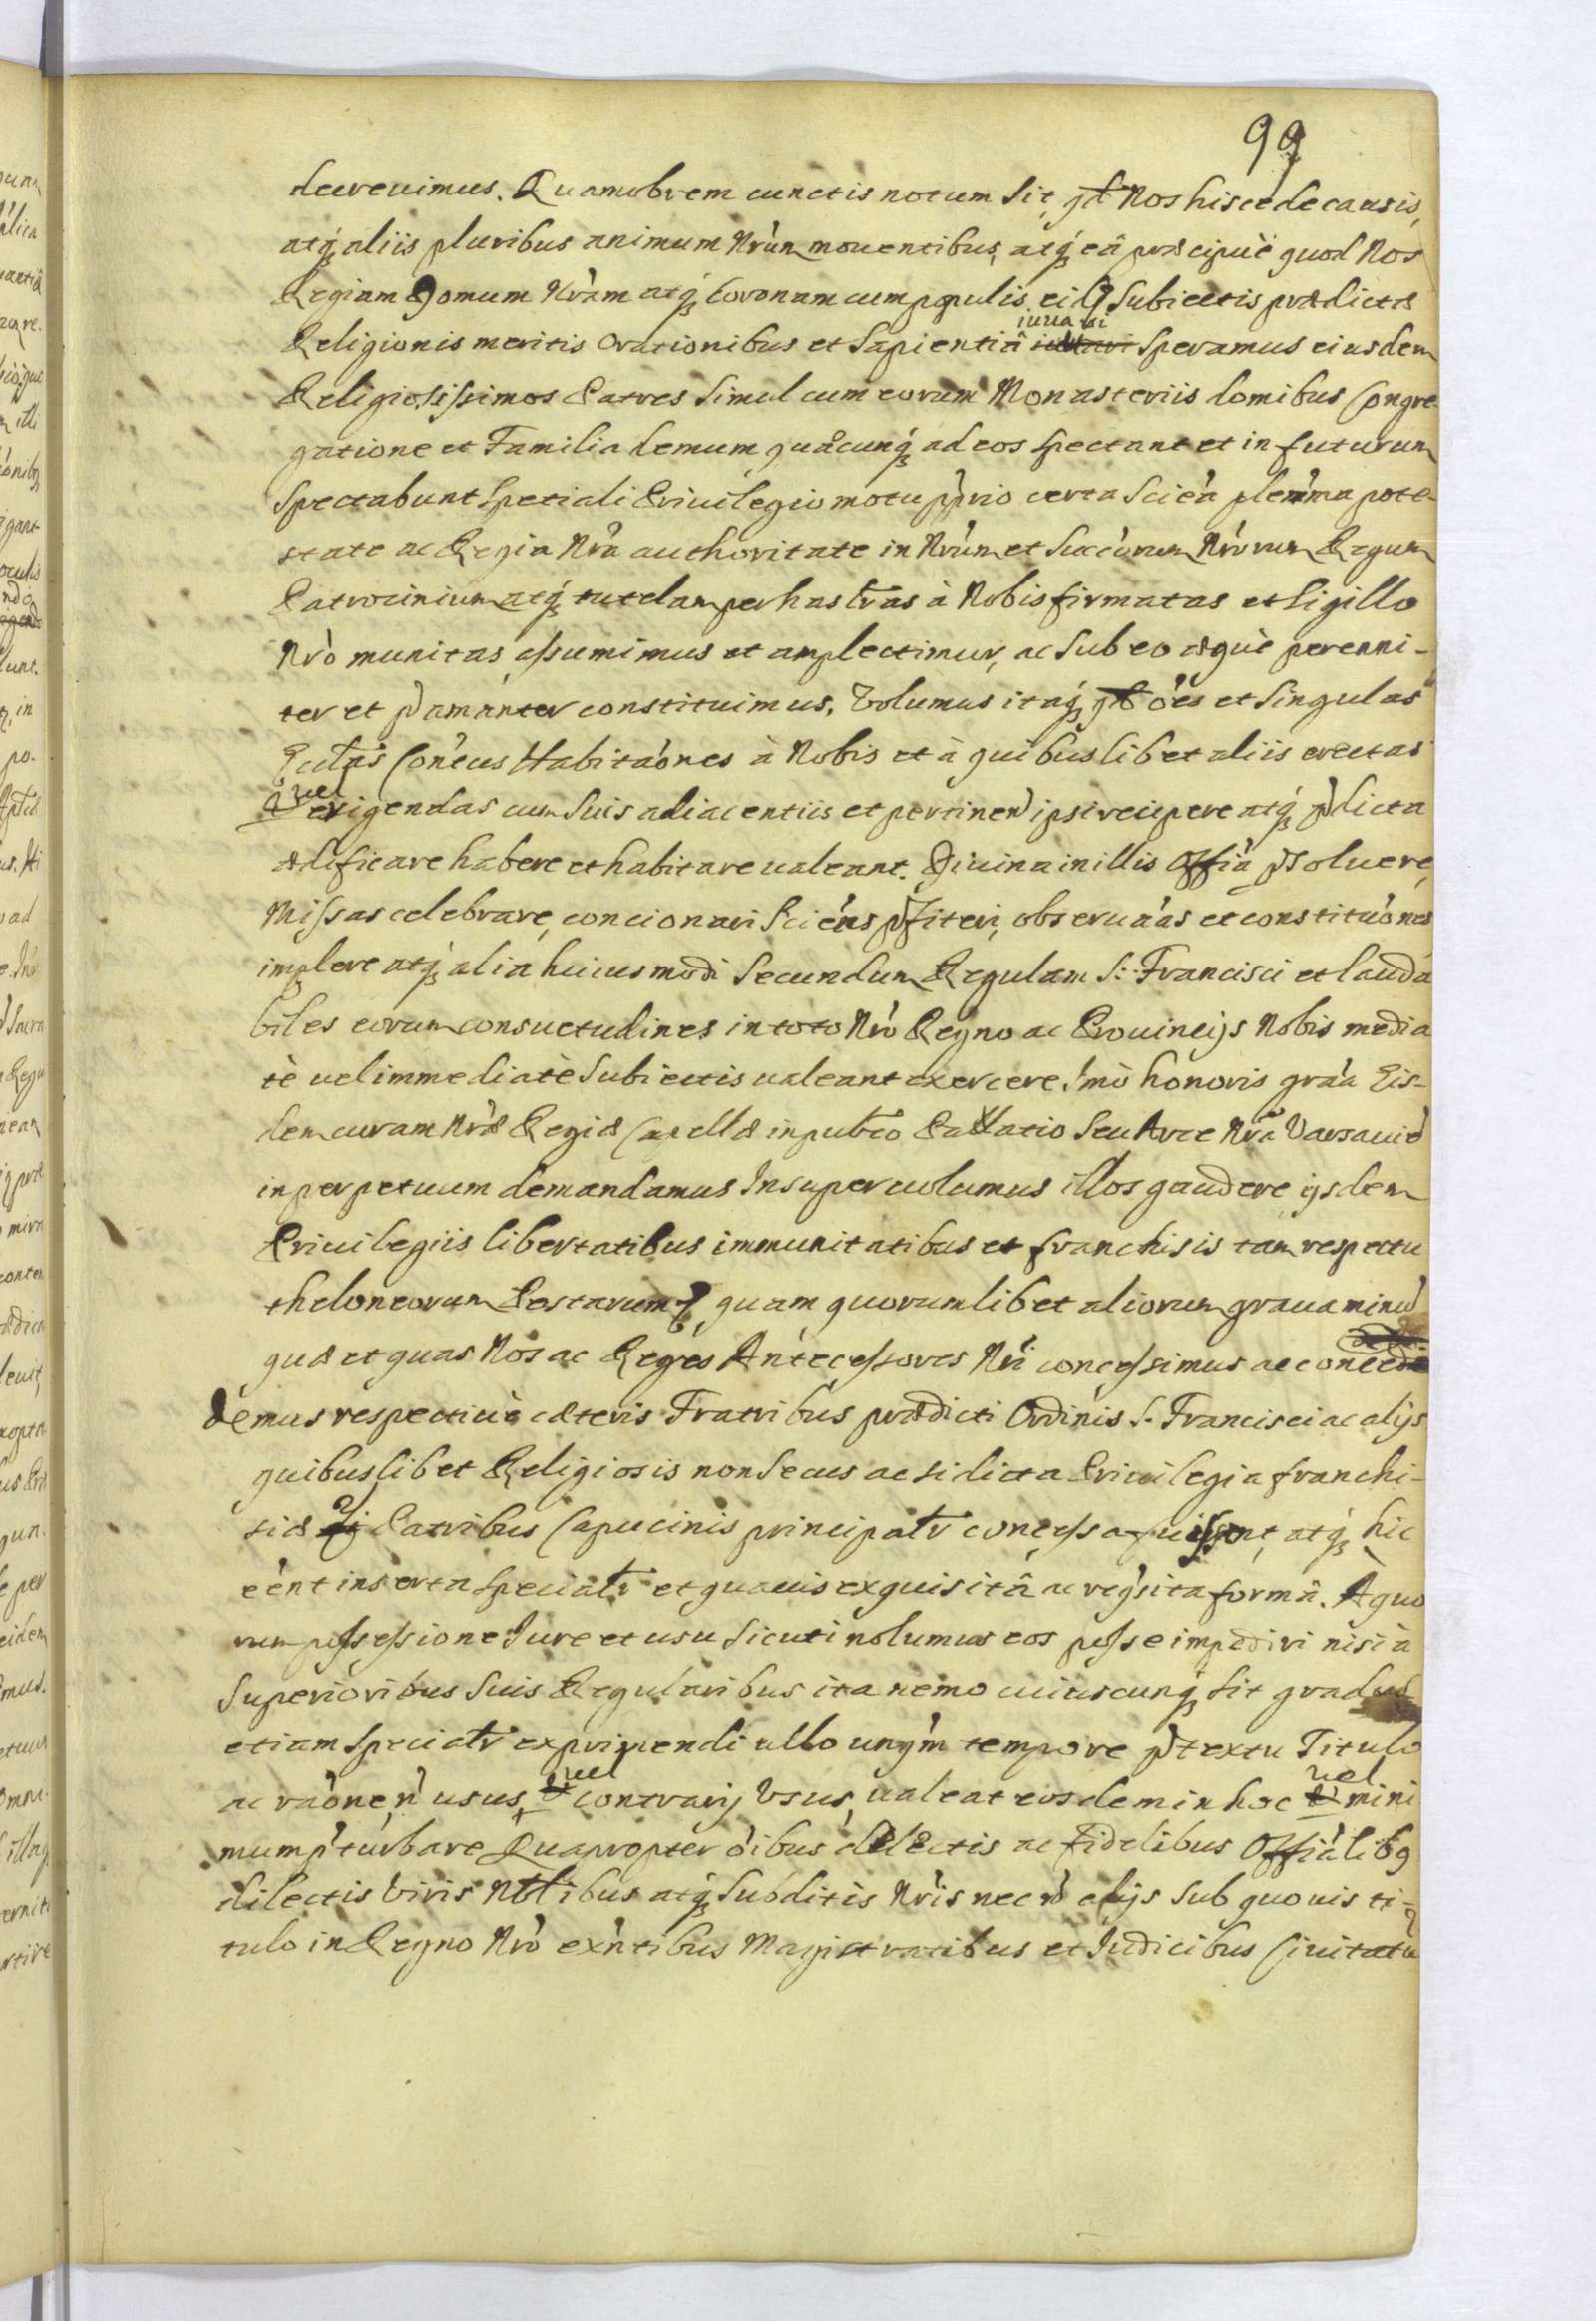 99
decreuimus. Quamobrem cunctis notum sit, qd Nos hisce de causis,
atq́ aliis pluribus animum Nrùm mouentibus, atq́ eâ præcipuè quod Nos
Regiam Domum Nràm atq́ Coronam cum populis eid subiectis prædictæ
iuuari
Religionis meritis orationibus et sapientiâ speramus eiusdem
Religiosissimos Patres simul cum eorum Monasteriis domibus Congre-
gatione et Familia demum quæcunq́ ad eos spectant et in futurum
spectabunt speciali Priuilegio motu pprio certa scieà plenma pote-
state ac Regia Nrà authoritate in Nrùm et Succùrum Nròrum Regum
Patrocinium atq́ tutelam per has lras à Nobis firmatas et sigillo
Nrò munitas, assumimus et amplectimur, ac sub eo æquè perenni-
ter et pamanter constituimus. Volumus itaq́ qd oès et singulas
Eccltas Conèus Habitaònes à Nobis et à quibuslibet aliis erectas
vel
erigendas cum suis adiacentiis et pertinen ipsi recipere atq́ pdicta
ædificare habere et habitare ualeant. Diuina in illis offià psoluere,
Missas celebrare, concionari Scieàs pfiteri, obseruaàs et constituònes
implere atq́ alia huiusmodi secundum Regulam S: Francisci et lauda
biles eorum consuetudines in toto Nrò Regno ac Prouincijs Nobis media
tè uel immediatè subiectis ualeant exercere. Imò honoris graà Eis-
dem curam Nræ Regiæ Capellæ in publco Pallatio seu Arce Nrà Varsauiæ
in perpetuum demandamus Insuper uolumus illos gaudere ijsdem
Priuilegiis libertatibus immunitatibus et franchisis tam respectu
theloneorum Postarum, quam quorumlibet aliorum grauaminu
quæ et quas Nos ac Reges Antecessores Nri concessimus ac conce
demus respectiuè cæteris Fratribus prædicti Ordinis S. Francisci ac alijs
quibuslibet Religiosis non secus ac si dicta Priuilegia franchi-
siæ Patribus Capucinis principalr concessa fuissent, atq́ hic
eènt inserta specialr et quauis exquisitâ ac reqsita formâ. A quo
rum possessione Iure et usu sicuti nolumus eos posse impediri nisi à
Superioribus suis Regularibus ita nemo cuiuscunq́ sit gradus
etiam specialr exprimendi ullo unqm tempore ptextu Titulo
vel vel
ac raòne, n usus, contrarij Vsus, ualeat eosdem in hoc mini
mum pturbare Quapropter oìbus dilectis ac fidelibus Offiàlibg
dilectis Viris Nblibus atq́ subditis Nrìs necn alijs sub quouis ti-
tulo in Regno Nrò exntibus Magistratibus et Iudicibus Ciuitatu